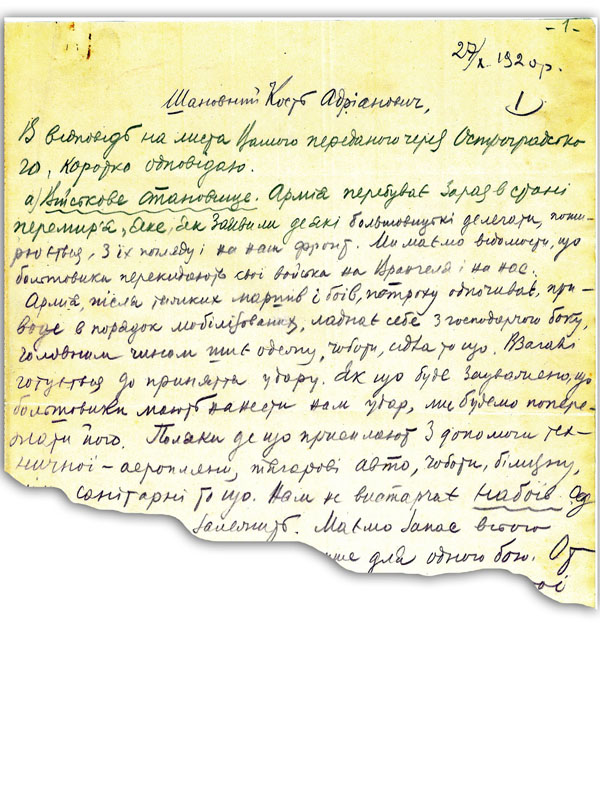 -1-
27/X 1920 р.
Шановний Кость Адріанович,
1
В відповідь на листа Вашого переданого через Остроградсько
го, коротко одповідаю.
а) Військове становище. Армія перебуває зараз в стані
перемирʼя, яке, як заявили деякі большовицькі делегати, поши-
рюється, з їх погляду і на наш фронт. Ми маємо відомости, що
большовики перекидають свої війська на Врангеля і на нас.
Армія, після тяжких маршів і боїв, потроху одпочиває, при-
воде в порядок мобілізованих, ладнає себе з господарчого боку,
головним чином шиє одежу, чоботи, сідла то що. Взагалі
готується до приняття удару. Як що буде зауважено, що
большовики мають нанести нам удар, ми будемо попере-
жати його. Поляки де що присилают з допомоги тех-
ничної – аероплани, тягарові авто, чоботи, білизну,
санітарні то що. Нам не вистарчає набоїв.
залежить. Маємо запас всього
для одного бою. От